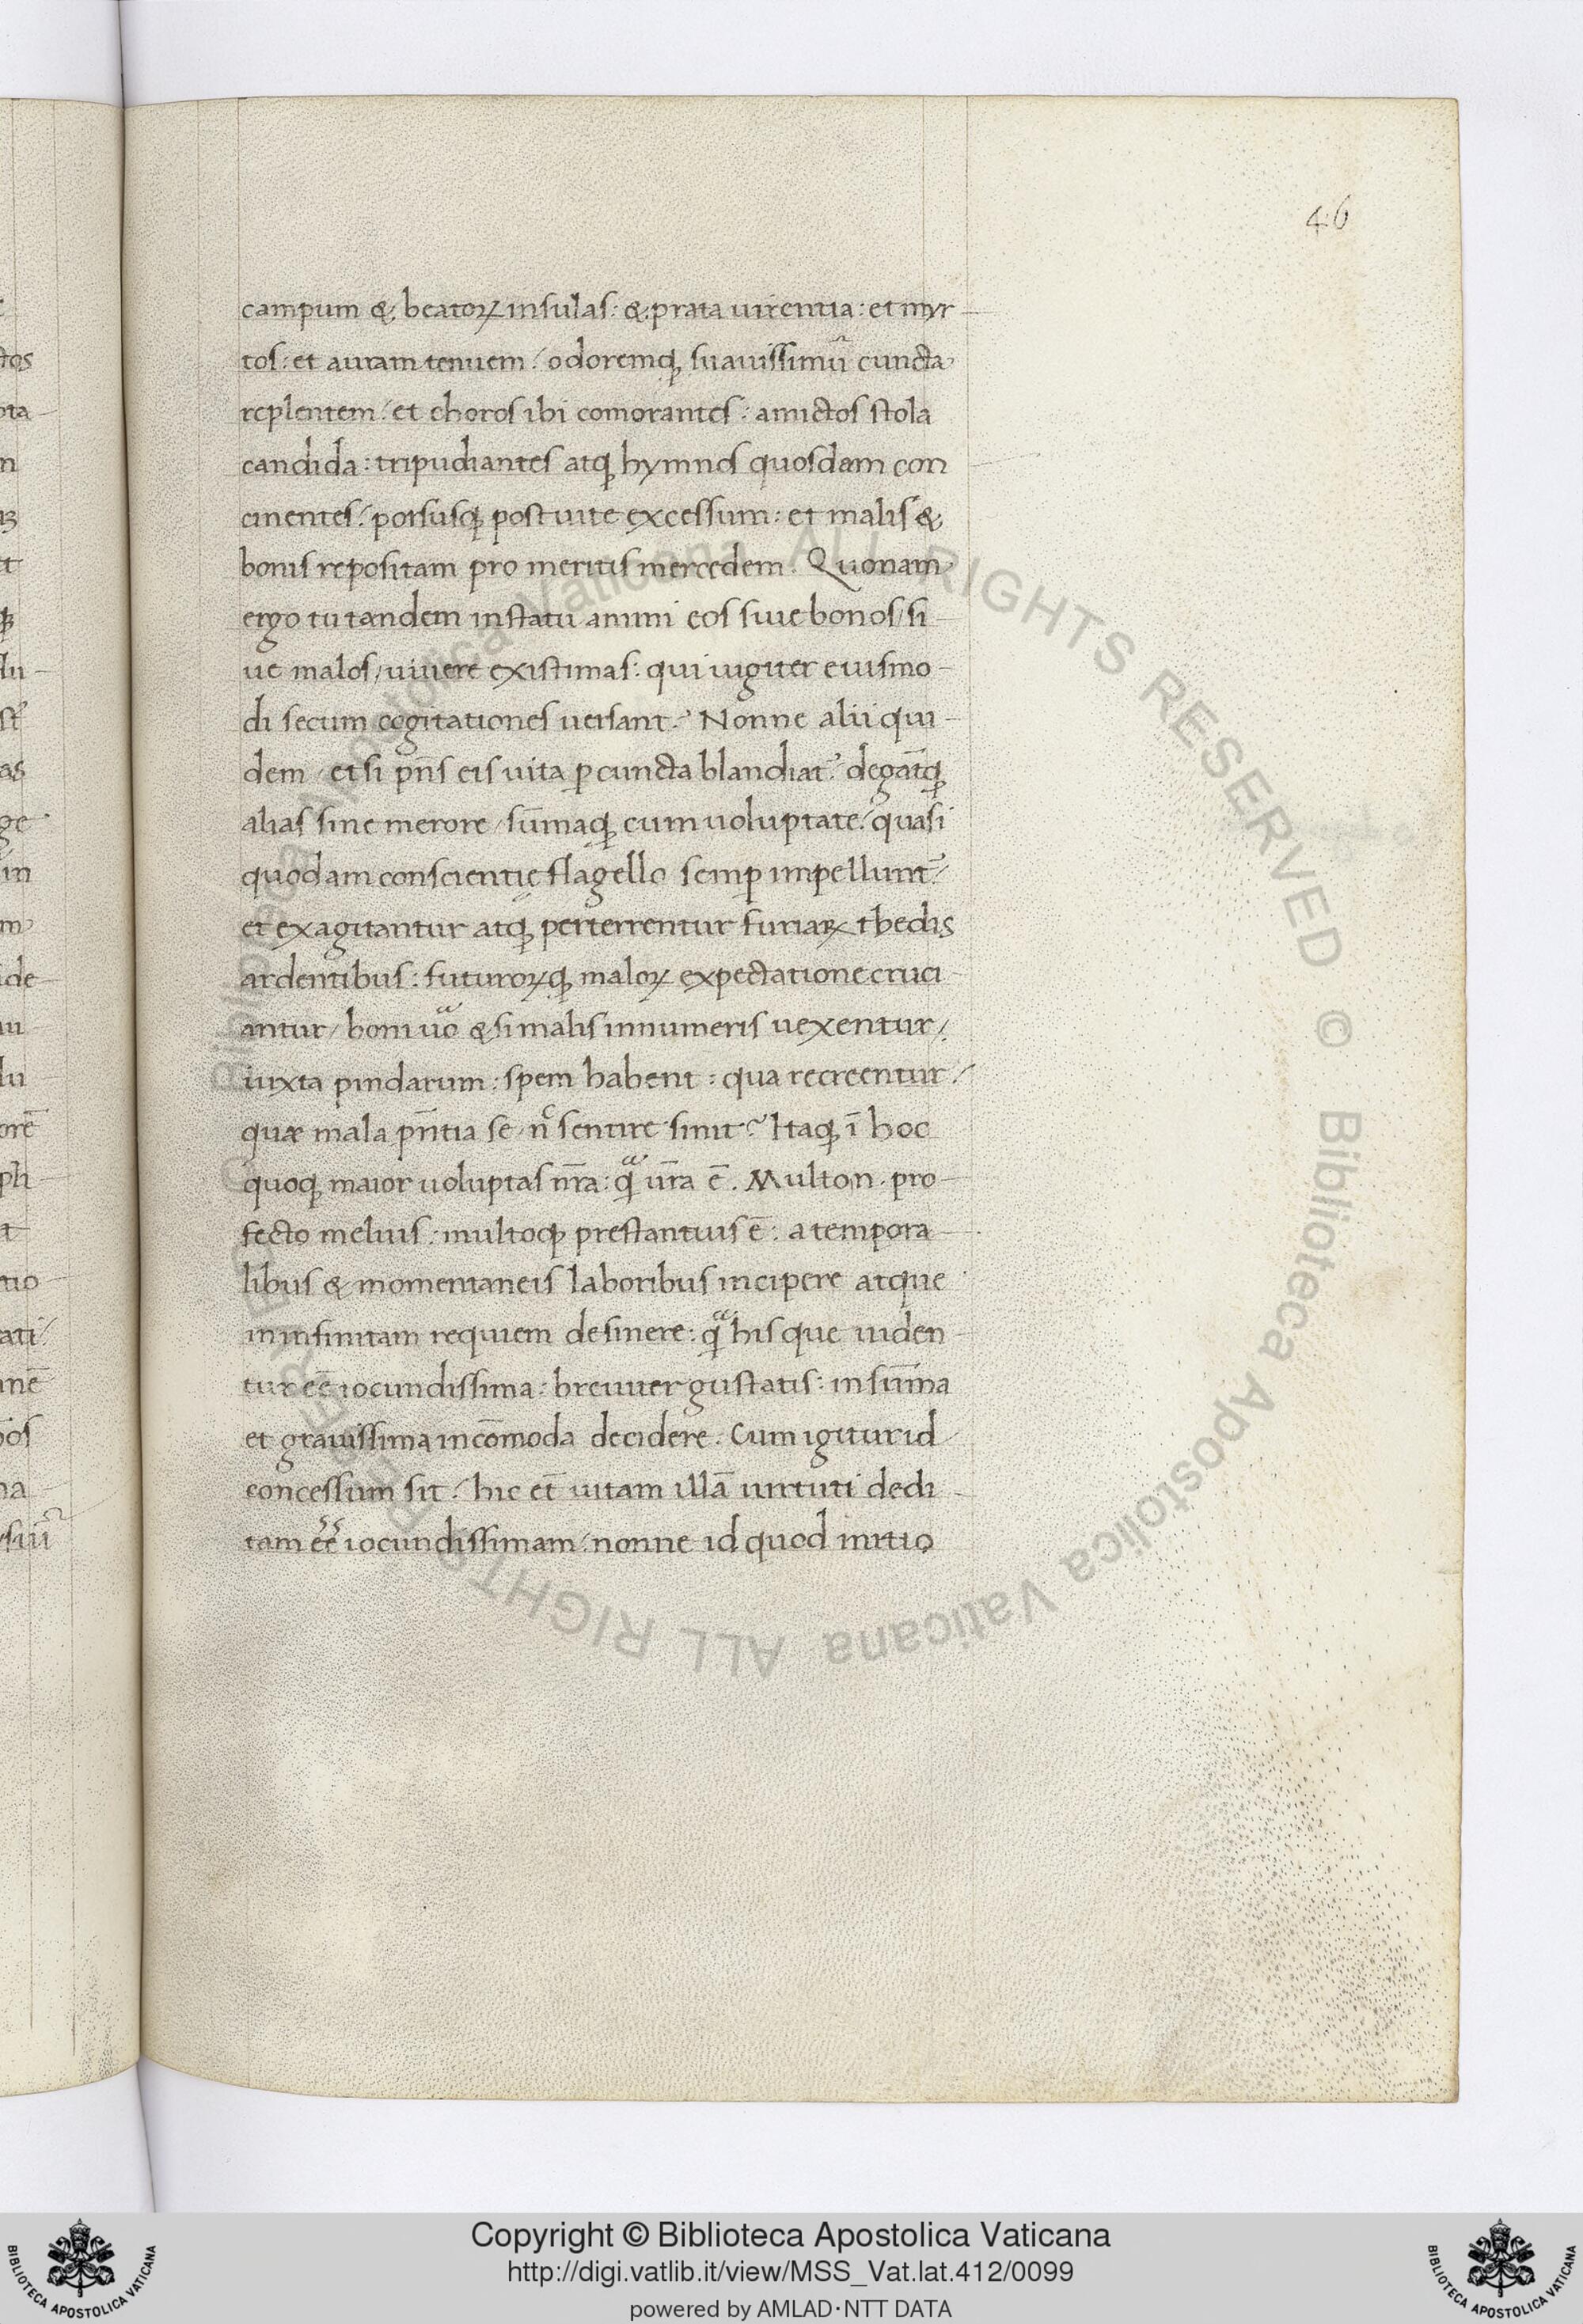 46
campum &, beatoꝝ insulas: &, prata uirentia: et myr-
tos: et auram tenuem / odoremq̨ suauissimũ cuncta
replentem / et choros ibi comorantes: amictos stola
candida: tripudiantes atq̨ hymnos quosdam con
cinentes / porsusq̨ post uite excessum: et malis &
bonis repositam pro meritis mercedem. Quonam
ergo tu tandem in statu animi eos siue bonos / si
ue malos / uiuere existimas: qui iugiter eiusmo-
di secum cogitationes uersant? Nonne alii qui-
dem / et si p̄ns eis uita ꝑ cuncta blandiat᷑: degãtq̨
alias sine merore / sūmaq̨ cum uoluptate / quasi
quodam conscientię flagello semꝑ impellunt᷑:
et exagitantur atq̨ perterrentur furiaꝝ thedis
ardentibus: futuroꝝq̨ maloꝝ expectatione cruci-
antur / boni uͦo & si malis innumeris uexentur /
iuxta pindarum: spem habent: qua recreentur /
quæ mala p̄ntia se n̄ sentire sinit? Itaq̨ ī hoc
quoq̨ maior uoluptas nr̄a: q̨ᵃ ur̄a ē. Multon pro-
fecto melius: multoq̨ prestantius ē: a tempora-
libus & momentaneis laboribus incipere atque
in infinitam requiem desinere: q̨ᵃ his que uiden-
tur eē iocundissima: breuiter gustatis: in sūma
et grauissima incōmoda decidere. Cum igitur id
concessum sit / hic et̄ uitam illā uirtuti dedi-
tam eē iocundissimam / nonne id quod initio
tos
ota-
n
lu-
as
ge
in
ide-
lu
orē
ph-
tio
ati
nē
ALL RIGHTS RESERVED © Biblioteca Apostolica Vaticana ALL RIGHTS RESERVED © Biblioteca Apostolica Vaticana
BIBLIOTECA APOSTOLICA VATICANA
Copyright © Biblioteca Apostolica Vaticana
http://digi.vatlib.it/view/MSS_Vat.lat.412/0099
powered by AMLAD·NTT DATA
BIBLIOTECA APOSTOLICA VATICANA